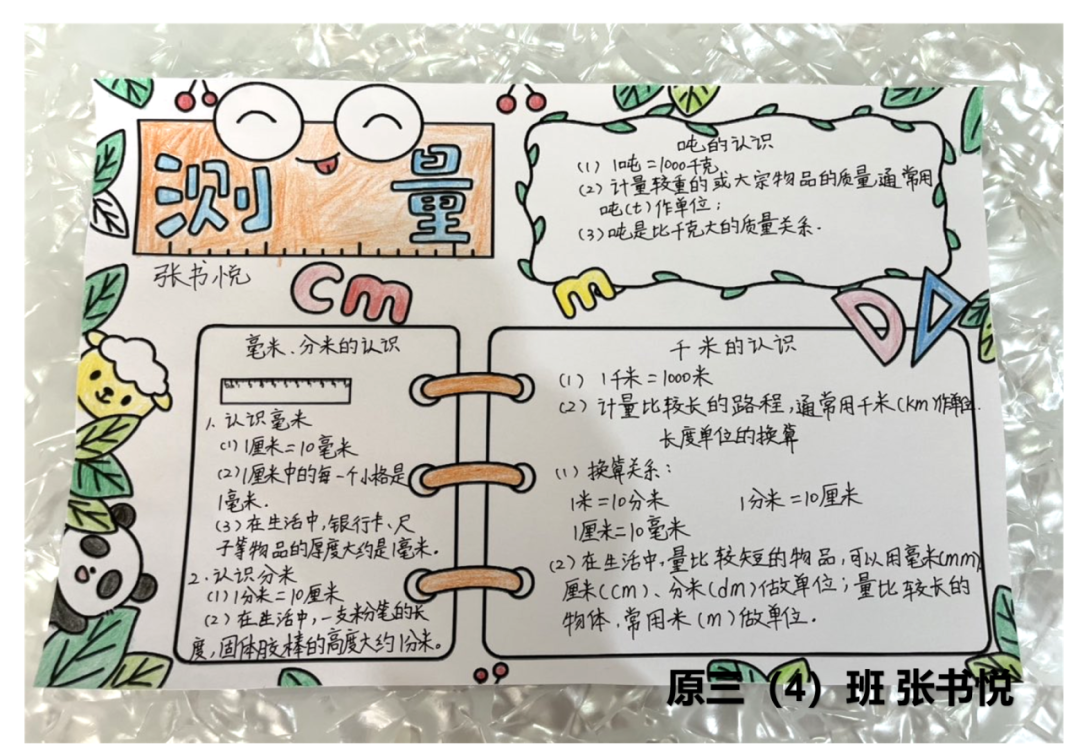 测量
张书悦
cm
m
吨的认识
(1) 1吨=1000千克
(2) 计量较重的或大宗物品的质量,通常用
吨(t)作单位;
(3)吨是比千克大的质量关系.
毫米、分米的认识
1. 认识毫米
(1)1厘米=10毫米
(2)1厘米中的每一个小格是
1毫米.
(3)在生活中,银行卡、尺
子等物品的厚度大约是1毫米。
2.认识分米
(1)1分米=10厘米
(2)在生活中,一支粉笔的长
度,固体胶棒的高度大约1分米。
千米的认识
(1) 1千米=1000米
(2) 计量比较长的路程,通常用千米(km)作单位.
长度单位的换算
(1) 换算关系:
1米=10分米 1分米=10厘米
1厘米=10毫米
(2)在生活中,量比较短的物品,可以用毫米(mm)
厘米(cm)、分米(dm)做单位;量比较长的
物体,常用米(m)做单位.
原三(4)班 张书悦